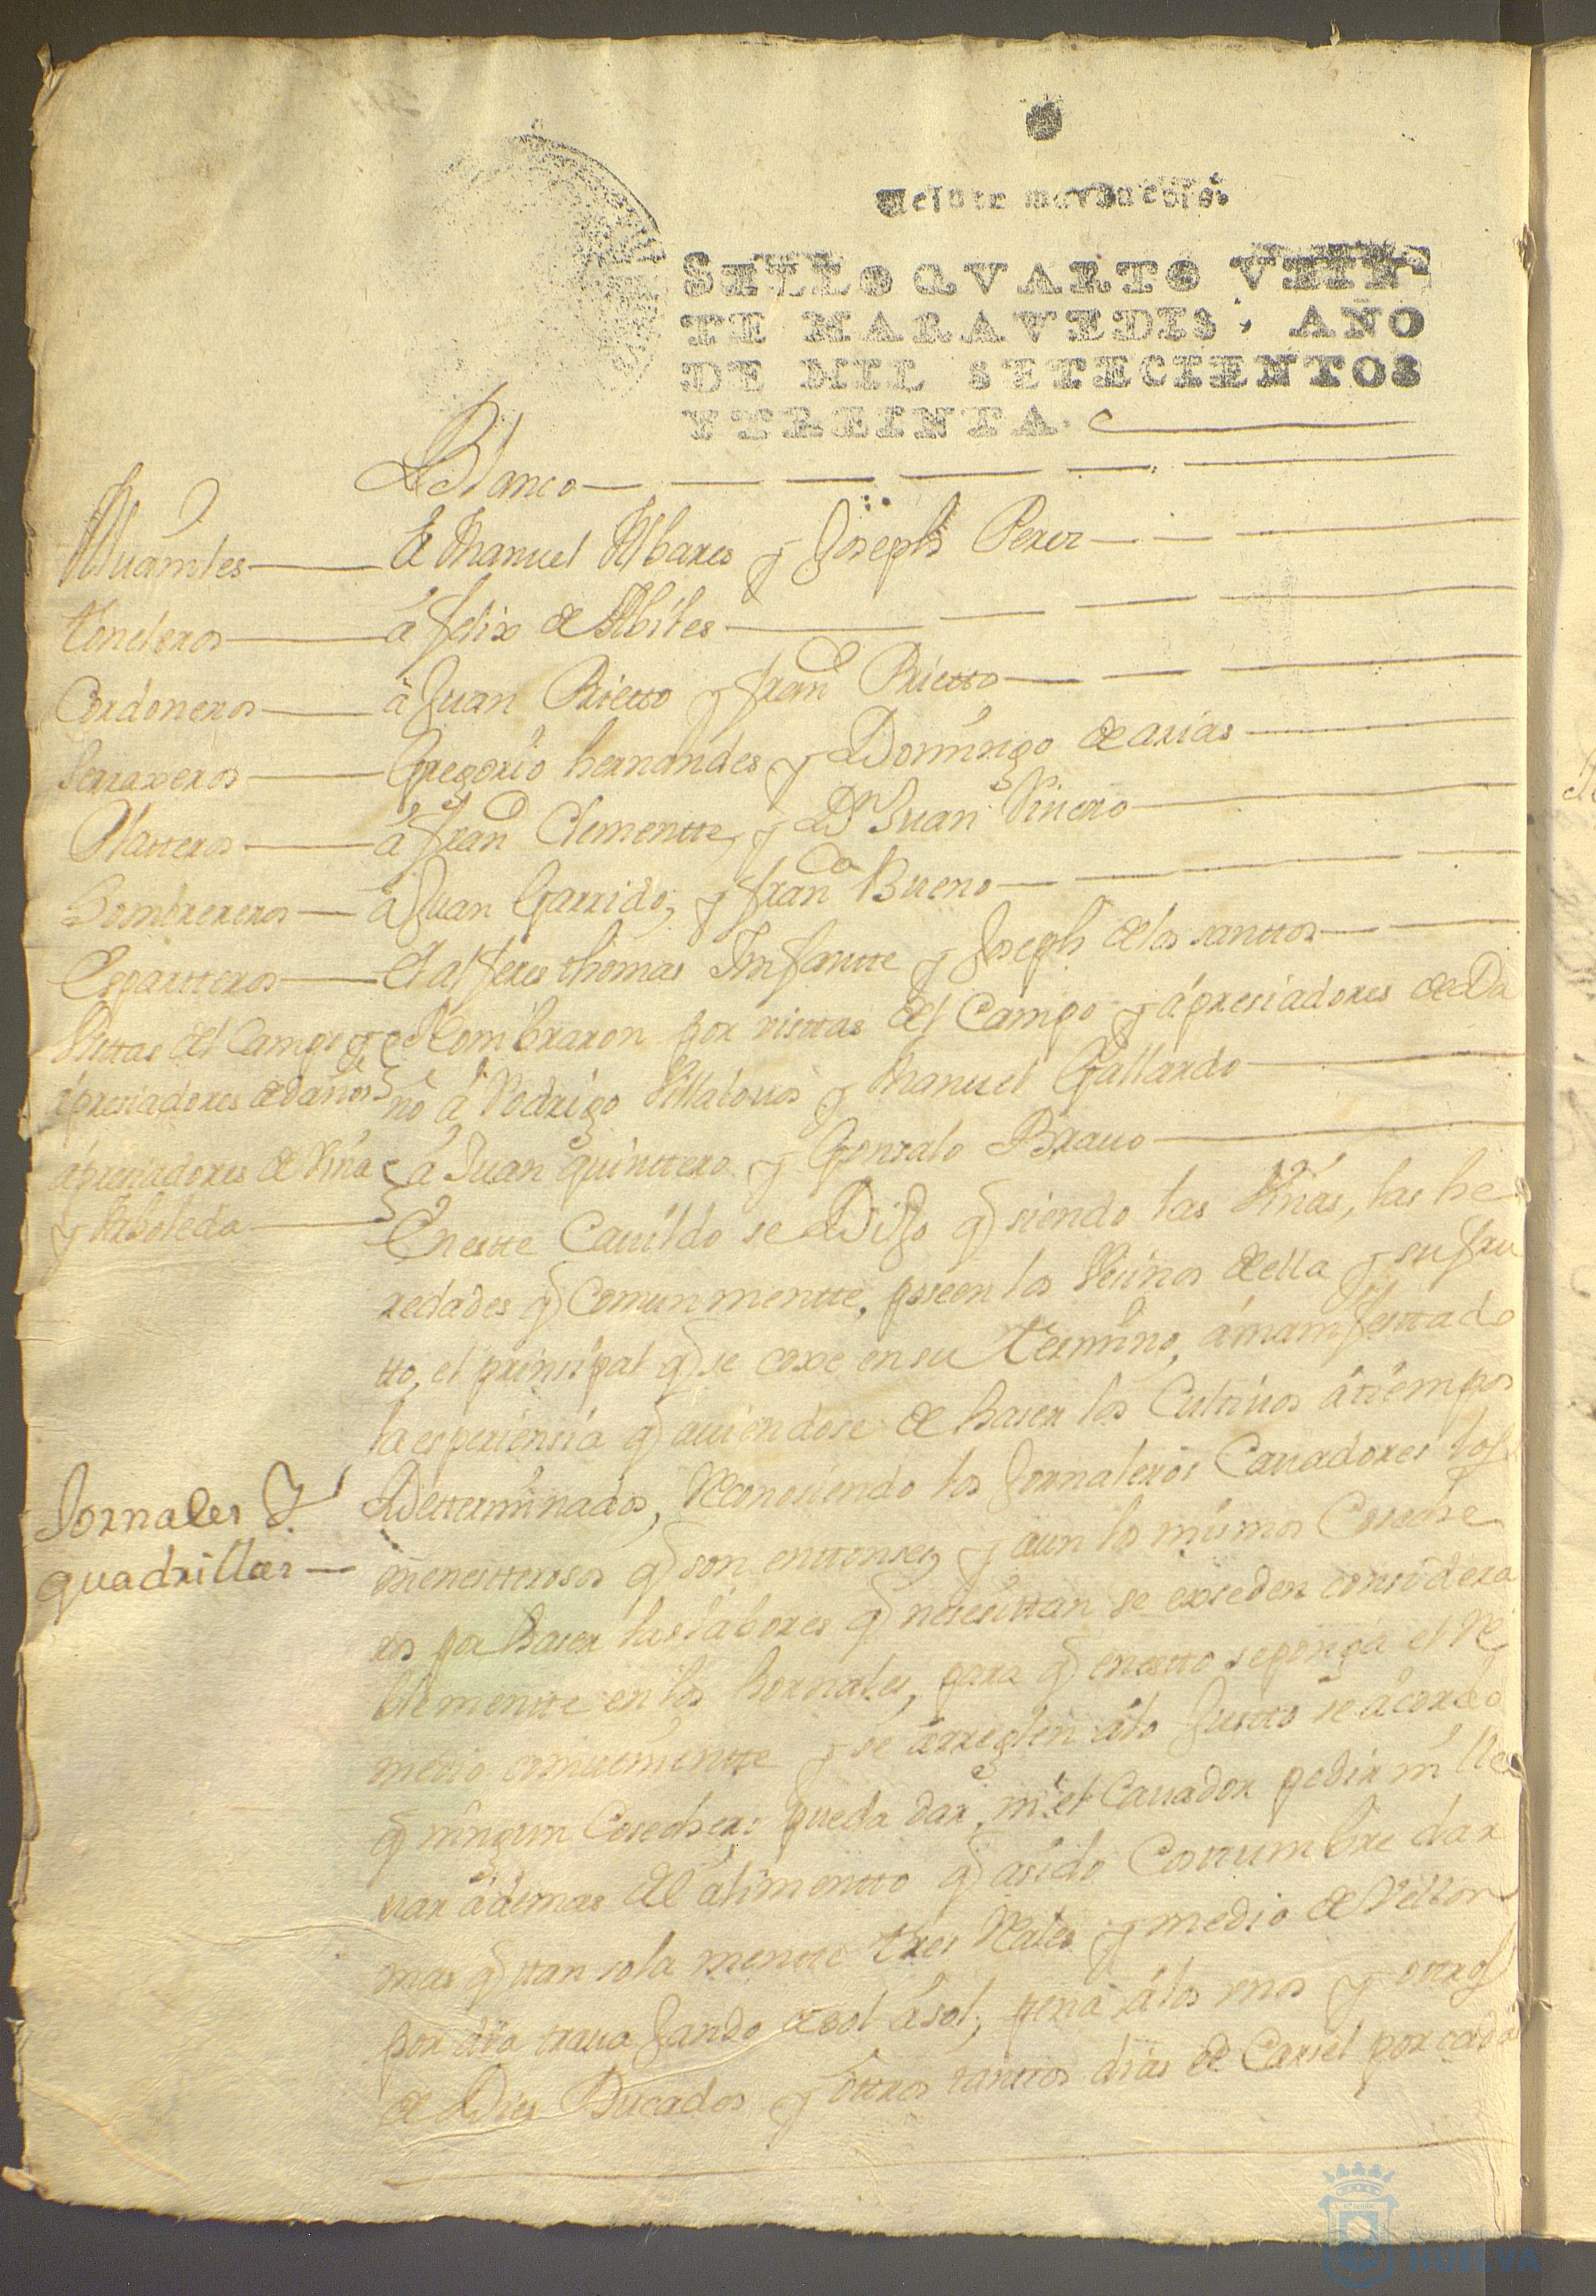 Veinte maravedis.
SELLO QVARTO VEIN
TE MARAVEDIS, AÑO
DE MIL SETECIENTOS
Y TREINTA.
Blanco
a Manuel Albares y Joseph Perez
Toneleros á felix de Abiles
Cordoneros â Juan Prietto y franco Prietto
Serraxeros Gregorio hernandes y Domingo de arias
Platteros á franco Clementte, y Dn Juan Piñero
Sombrereros â Juan Garrido, y franco Bueno
Espartteros el alferes thomas Infantte y Joseph de los santtos
Vistas del Campo y Nombraron por vistas del Campo y ápresiadores de Da
ápresiadores de Daños ño á Rodrigo Villalouos y Manuel Gallardo
ápresiadores de Viñas á Juan quinttero y Gonzalo Brauo
y Arboleda
En estte Cauildo se Dijo q siendo las Viñas, las he
redades q Comunmentte, poseen los Vecinos della y su fru
tto, el prinsipal q se coxe en su termino, á manifesttado
la esperiensia q auiendose de haser los Cultiuos á tiempos
Jornales y Detterminados, Reconosiendo los Jornaleros Cauadores los
quadrillas menestterosos q son enttonses, y aun los mismos Coseche
ros por haser las labores q nesesittan se exseden considera
blementte en los Jornales, para q en estto se ponga el Re
medio conuenientte y se ârreglen álo Justto se ácordo
q ningun Cosechero pueda dar, ni el Cauador pedir ni lle
uar ádemas del álimentto q asido Costtumbre dar
mas q ttan solamentte tres Reales y medio de Vellon
por dia trauajando de sol á sol, pena álos vnos y ottros
de Dies Ducados y ottros tanttos dias de Carsel por cada
HUELVA